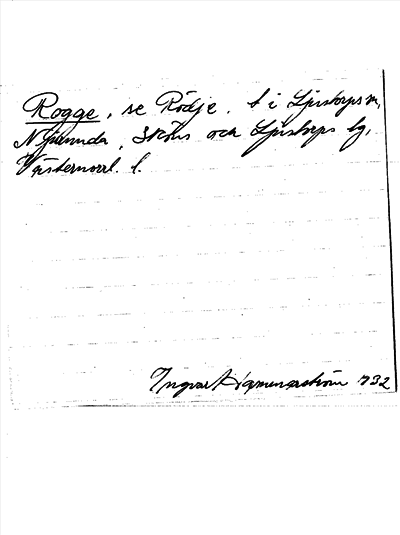 Rogge, se Rödje. t i Ljustorps sn,
Njurunda, Sköns och Ljustorps tg,
Västernorrl. l.
Ingvar Hammarström 1932